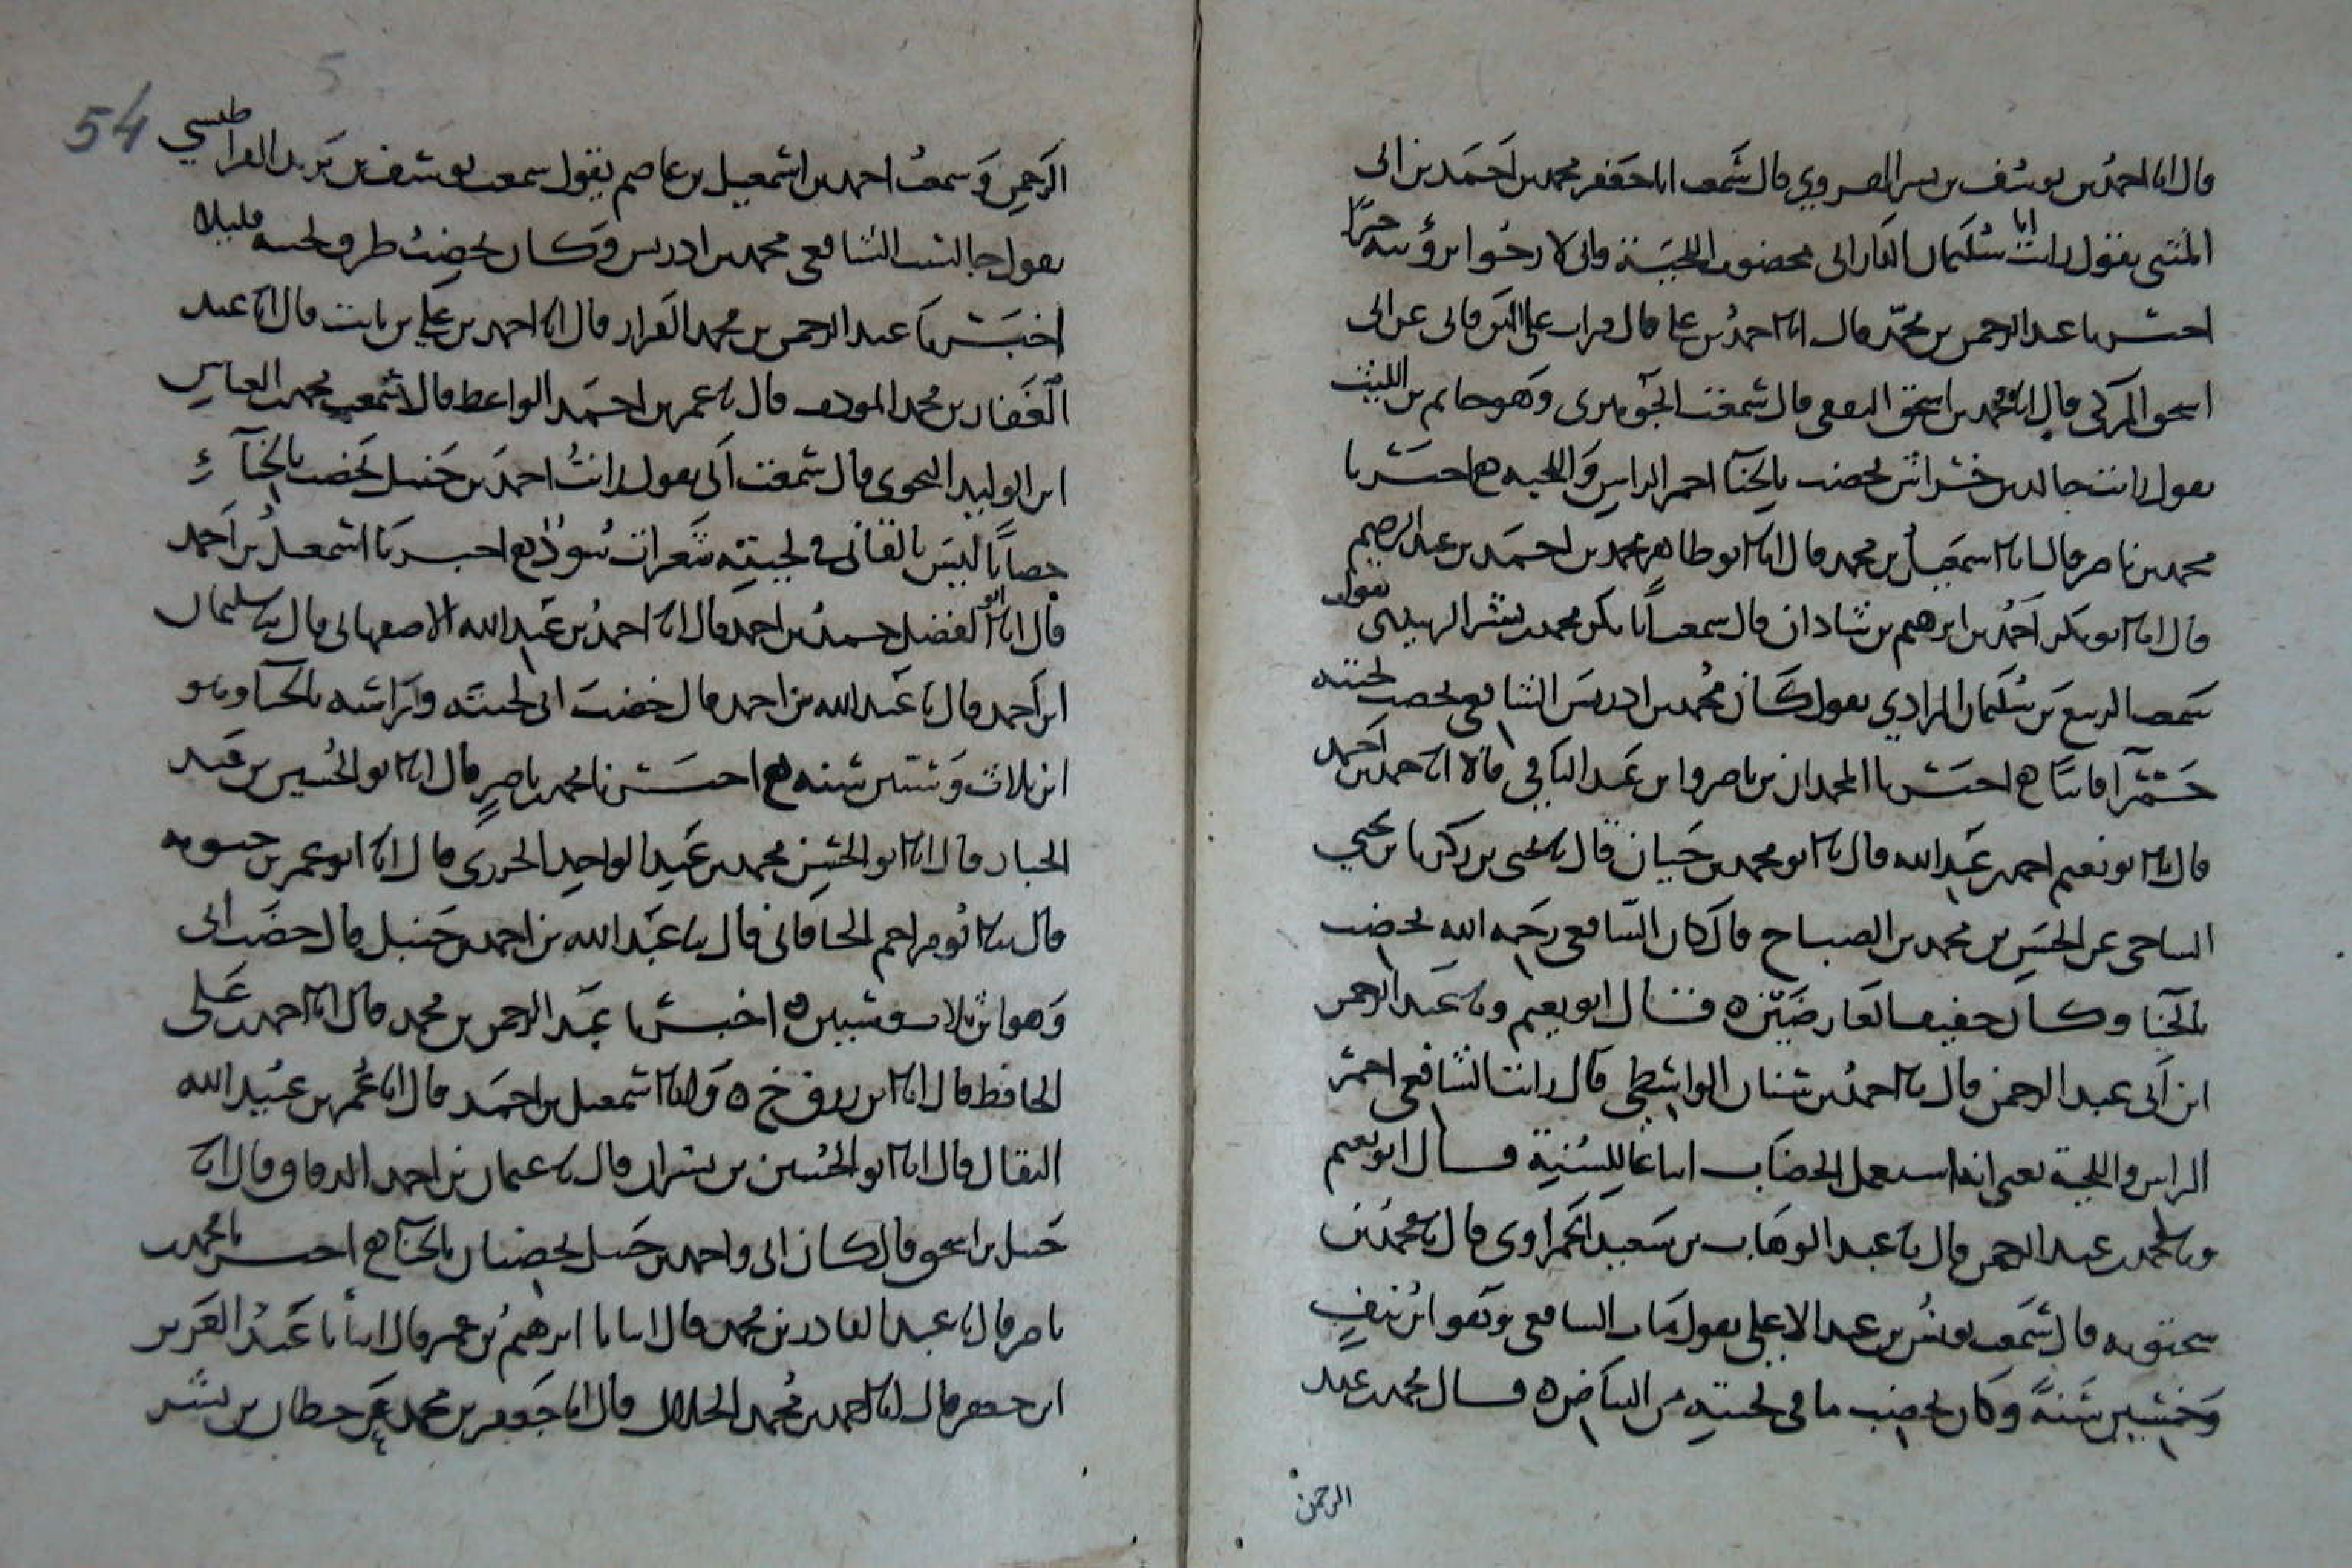 قال انا احمد بن يوسف بن بسر الهروي قال سمعت ابا جعفر محمد بن احمد بن ابى
المثنى يقول رايت ابا سليمان الدارانى مخضوب اللحية وانى لارجوا برؤيته خيرا
اخبرنا عبد الرحمن بن محمد قال انا احمد بن على قال قرات على البرقانى عن ابى
اسحق المزكى قال انا محمد بن اسحق الثقفى قال سمعت الجوهرى وهو حاتم بن الليث
يقول رايت خالد بن خداش يخضب بالحنا احمر الراس واللحيه ه اخبرنا
محمد بن ناصر قال انا اسمعيل بن محمد قال انا ابو طاهر محمد بن احمد بن عبد الرحيم
قال انا ابو بكر احمد بن ابرهيم بن شاذان قال سمعت ابا بكر محمد بن بشر الزبيرى يقول
سمعت الربيع بن سليمان المرادي يقول كان محمد بن ادريس الشافعى يخضب لحيته
حمرا قانيا ه اخبرنا المحمدان بن ناصر وابن عبد الباقي قالا انا حمد بن احمد
قال انا ابو نعيم احمد بن عبد الله قال نا ابو محمد بن حيان قال نا يحيى بن زكريا بن يحيي
الساجى عن الحسن بن محمد بن الصباح قال كان الشافعى رحمه الله يخضب
بالحنا وكان خفيف العارضين ه قال ابو نعيم ونا عبد الرحمن
ابن ابى عبد الرحمن قال نا احمد بن سنان الواسطى قال رايت الشافعى احمر
الراس واللحية يعنى انه استعمل الخضاب اتباعا للسنة قال ابو نعيم
ونا محمد بن عبد الرحمن قال نا عبد الوهاب بن سعيد الحمراوى قال نا محمد بن
سحتويه قال سمعت يونس بن عبد الاعلى يقول مات الشافعى وهو ابن نيف
وخمسين سنة وكان يخضب ما فى لحيته من البياض ه قال محمد بن عبد
الرحمن
54
الرحمن وسمعت احمد بن اسمعيل بن عاصم يقول سمعت يوسف بن يزيد القراطيسي
يقول جالست الشافعى محمد بن ادريس وكان يخضب طرف لحيته قليلا
اخبرنا عبد الرحمن بن محمد القزاز قال انا احمد بن على بن ثابت قال انا عبد
الغفار بن محمد المؤدب قال نا عمر بن احمد الواعظ قال سمعت محمد بن العباس
ابن الوليد النحوى قال سمعت ابى يقول رايت احمد بن حنبل يخضب بالحناء
خضابا ليس بالقانى فى لحيته شعرات سود ه اخبرنا اسمعيل بن احمد
قال انا ابو الفضل حمد بن احمد قال انا احمد بن عبد الله الاصفهانى قال نا سليمان
ابن احمد قال نا عبد الله بن احمد قال خضب ابى لحيته وراسه بالحنا وهو
ابن ثلاث وستين سنه ه اخبرنا محمد بن ناصر قال انا ابو الحسين بن عبد
الجبار قال انا ابو الحسن محمد بن عبد الواحد الحريرى قال انا ابو عمر بن حيويه
قال نا ابو مزاحم الخاقانى قال نا عبد الله بن احمد بن حنبل قال خضب ابى
وهو ابن ثلاث وستين ه اخبرنا عبد الرحمن بن محمد قال انا احمد بن على
الحافظ قال انا ابن رزق ح ه وانا اسمعيل بن احمد قال انا عمر بن عبيد الله
البقال قال انا ابو الحسين بن بشران قال نا عثمان بن احمد الدقاق قال نا
حنبل بن اسحق قال كان ابى واحمد بن حنبل يخضبان بالحنا ه اخبرنا محمد بن
ناصر قال نا عبد القادر بن محمد قال انبانا ابرهيم بن عمر قال انبانا عبد العزيز
ابن جعفر قال انا احمد بن محمد الخلال قال انا جعفر بن محمد عن خطاب بن بشر